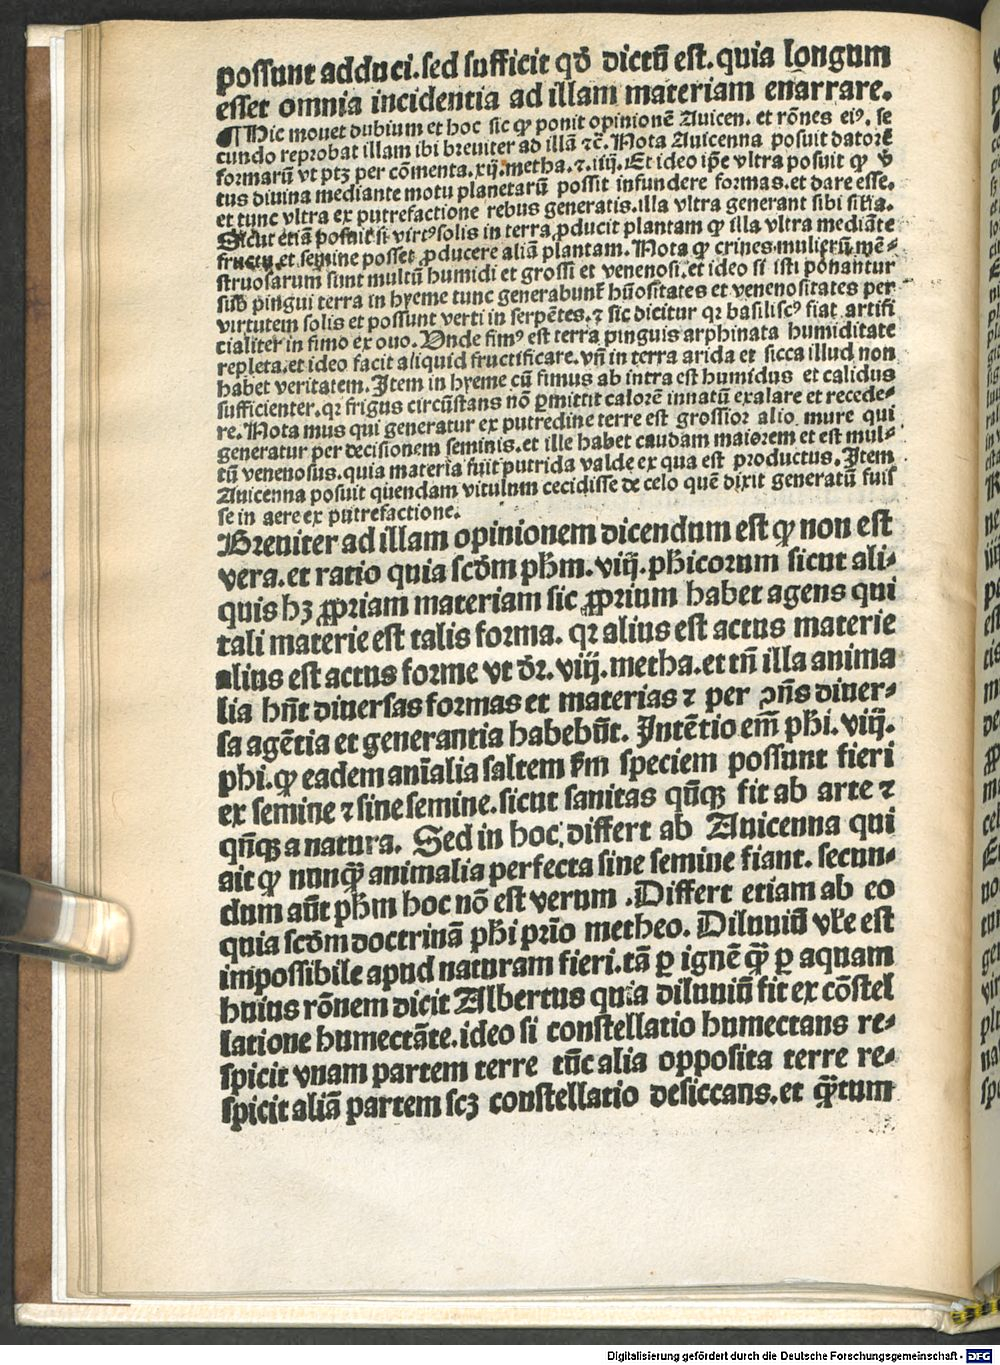 possunt adduci. sed sufficit qđ dictū est. quia longum
esset omnia incidentia ad illam materiam enarrare.
¶ Hic mouet dubium et hoc sic ꝙ ponit opinionē Auicen. et rōnes eiꝰ. se
cundo reprobat illam ibi breuiter ad illā ⁊c̄. Nota Auicenna posuit datorē
formarū vt ptꝫ per cōmenta. xij. metha. ⁊. iiij. Et ideo ip̄e vltra posuit ꝙ v̓
tus diuina mediante motu planetarū possit infundere formas. et dare esse.
et tunc vltra ex putrefactione rebus generatis. illa vltra generant sibi sil̄ia.
Sicut etiā posuit si virtꝰ solis in terra ꝓducit plantam ꝙ illa vltra mediāte
fructu et semine posset ꝓducere aliā plantam. Nota ꝙ crines mulierū mē⸗
struosarum sunt multū humidi et grossi et venenosi. et ideo si isti ponantur
sub pingui terra in hyeme tunc generabunt̄ hūositates et venenositates per
virtutem solis et possunt verti in serpētes. ⁊ sic dicitur qꝛ basiliscꝰ fiat artifi
cialiter in fimo ex ouo. Unde fimꝰ est terra pinguis arphinata humiditate
repleta. et ideo facit aliquid fructificare. vn̄ in terra arida et sicca illud non
habet veritatem. Item in hyeme cū fimus ab intra est humidus et calidus
sufficienter. qꝛ frigus circūstans nō ꝑmittit calorē innatū exalare et recede⸗
re. Nota mus qui generatur ex putredine terre est grossior alio mure qui
generatur per decisionem seminis. et ille habet caudam maiorem et est mul⸗
tū venenosus. quia materia fuit putrida valde ex qua est productus. Item
Auicenna posuit quendam vitulum cecidisse de celo quē dixit generatū fuis
se in aere ex putrefactione.
Breuiter ad illam opinionem dicendum est ꝙ non est
vera. et ratio quia scđm pħm. viij. phicorum sicut ali⸗
quis hꝫ ꝓpriam materiam sic ꝓprium habet agens qui
tali materie est talis forma. qꝛ alius est actus materie
alius est actus forme vt dr̄. viij. metha. et tn̄ illa anima
lia hn̄t diuersas formas et materias ⁊ per ꝯn̄s diuer⸗
sa agētia et generantia habebūt. Intētio em̄ phi. viij.
phi. ꝙ eadem anīalia saltem ẜm speciem possunt fieri
ex semine ⁊ sine semine. sicut sanitas qn̄qꝫ fit ab arte ⁊
qn̄qꝫ a natura. Sed in hoc differt ab Auicenna qui
ait ꝙ nunq̄ꝫ animalia perfecta sine semine fiant. secun⸗
dum aūt pħm hoc nō est verum. Differt etiam ab eo
quia scđm doctrinā phi prīo metheo. Diluuiū vl̄e est
impossibile apud naturam fieri. tā ꝑ ignē q̄ꝫ ꝑ aquam
huius rōnem dicit Albertus quia diluuiū fit ex cōstel
latione humectāte. ideo si constellatio humectans re⸗
spicit vnam partem terre tūc alia opposita terre re⸗
spicit aliā partem scꝫ constellatio desiccans. et q̄ꝫtum
Digitalisierung gefördert durch die Deutsche Forschungsgemeinschaft - DFG